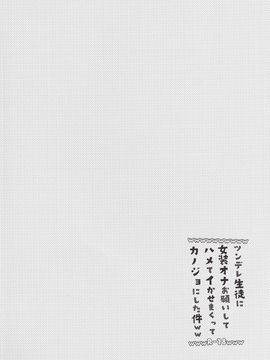 ツンデレ生徒に
女装オナお願いして
ハメてイかせまくって
カノジョにした件ww
R-18